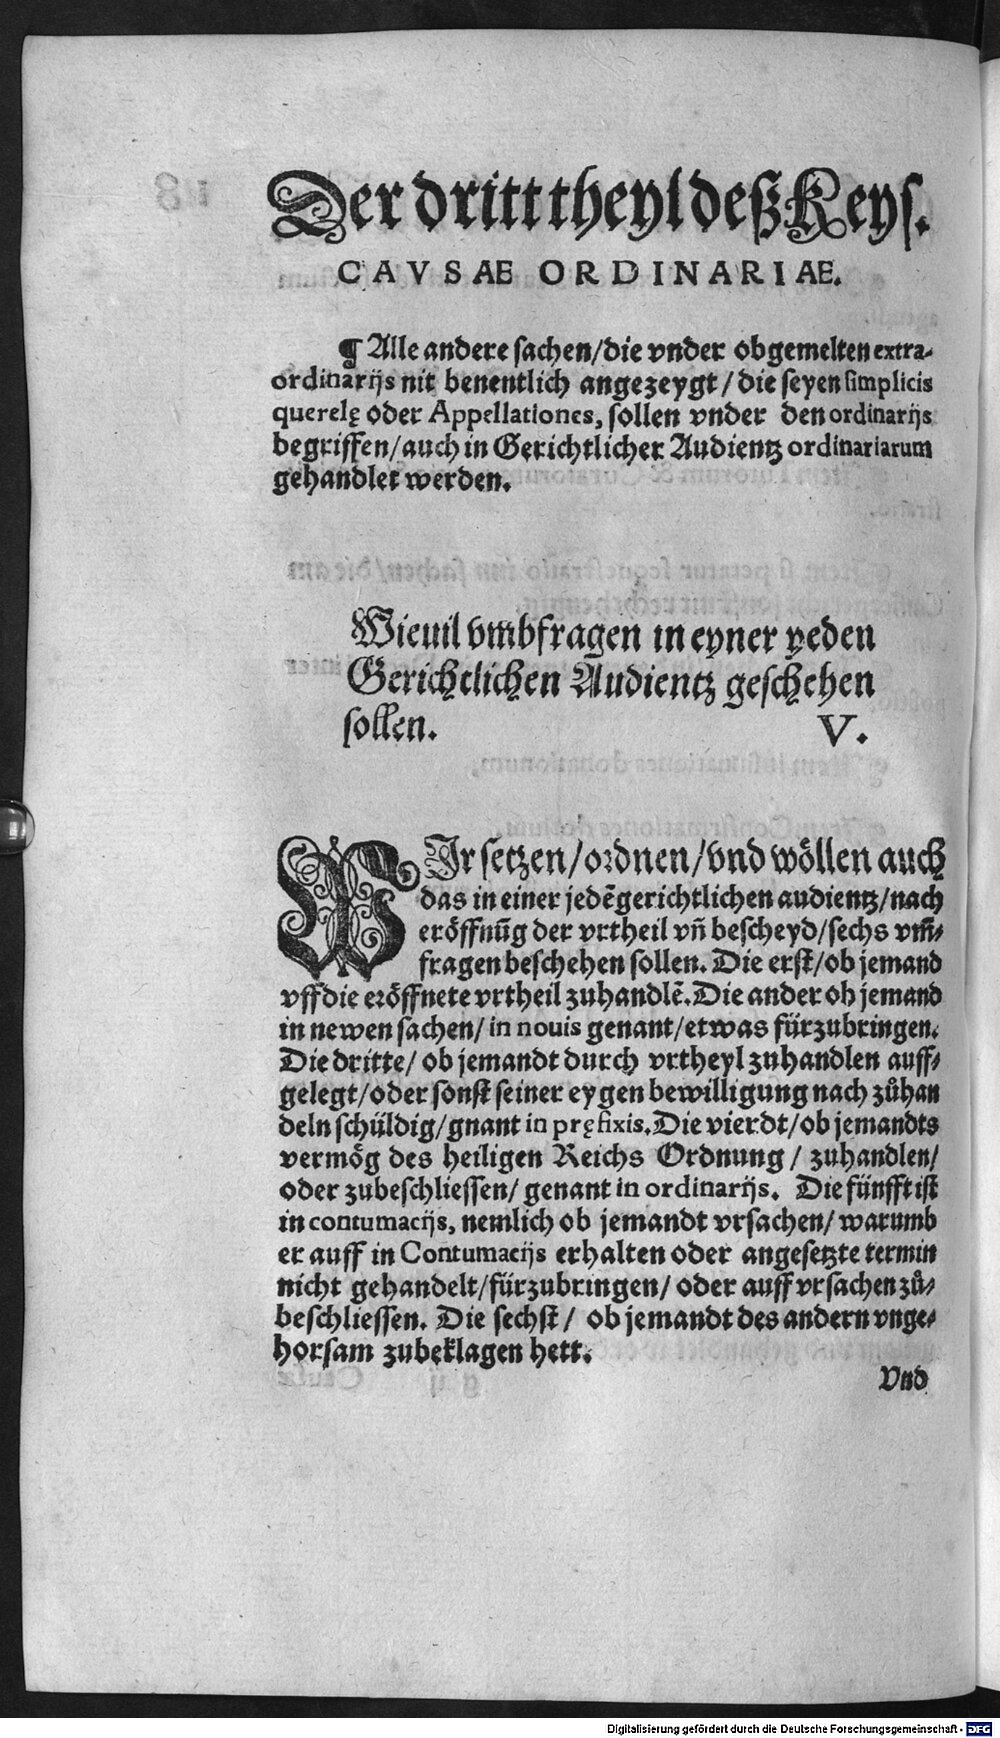 Der dritt theyl deß Keys.
CAVSAE ORDINARIAE.
¶ Alle andere sachen/die vnder obgemelten extra-
ordinarijs nit benentlich angezeygt/die seyen simplicis
querelę oder Appellationes, sollen vnder den ordinarijs
begriffen/auch in Gerichtlicher Audientz ordinariarum
gehandlet werden.
Wieuil vmbfragen in eyner yeden
Gerichtlichen Audientz geschehen
sollen. V.
WJr setzen/ordnen/vnd wöllen auch
das in einer jedē gerichtlichen audientz/nach
eröffnūg der vrtheil vñ bescheyd/sechs vm̄-
fragen beschehen sollen. Die erst/ob jemand
vff die eröffnete vrtheil zuhandlē. Die ander ob jemand
in newen sachen/in nouis genant/etwas fürzubringen.
Die dritte/ob jemandt durch vrtheyl zuhandlen auff-
gelegt/oder sonst seiner eygen bewilligung nach zůhan
deln schüldig/gnant in pręfixis. Die vierdt/ob jemandts
vermög des heiligen Reichs Ordnung/zuhandlen/
oder zubeschliessen/genant in ordinarijs. Die fünfft ist
in contumacijs, nemlich ob jemandt vrsachen/warumb
er auff in Contumacijs erhalten oder angesetzte termin
nicht gehandelt/fürzubringen/oder auff vrsachen zů-
beschliessen. Die sechst/ob jemandt des andern vnge-
horsam zubeklagen hett.
Vnd
Digitalisierung gefördert durch die Deutsche Forschungsgemeinschaft - DFG